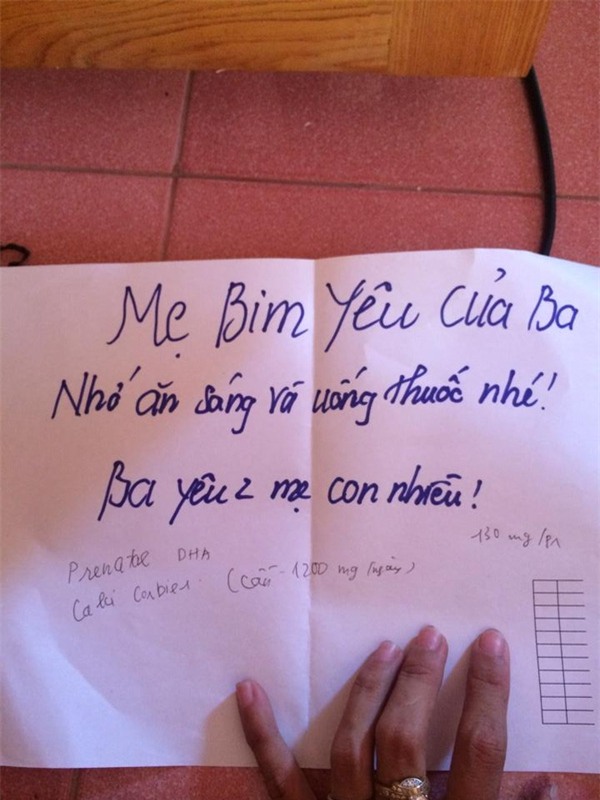 Mẹ Bim Yêu Của Ba
Nhớ ăn sáng và uống thuốc nhé!
Ba yêu 2 mẹ con nhiều!
130 mg/
Prenatal DHA
(cần 1200 mg/ngày)